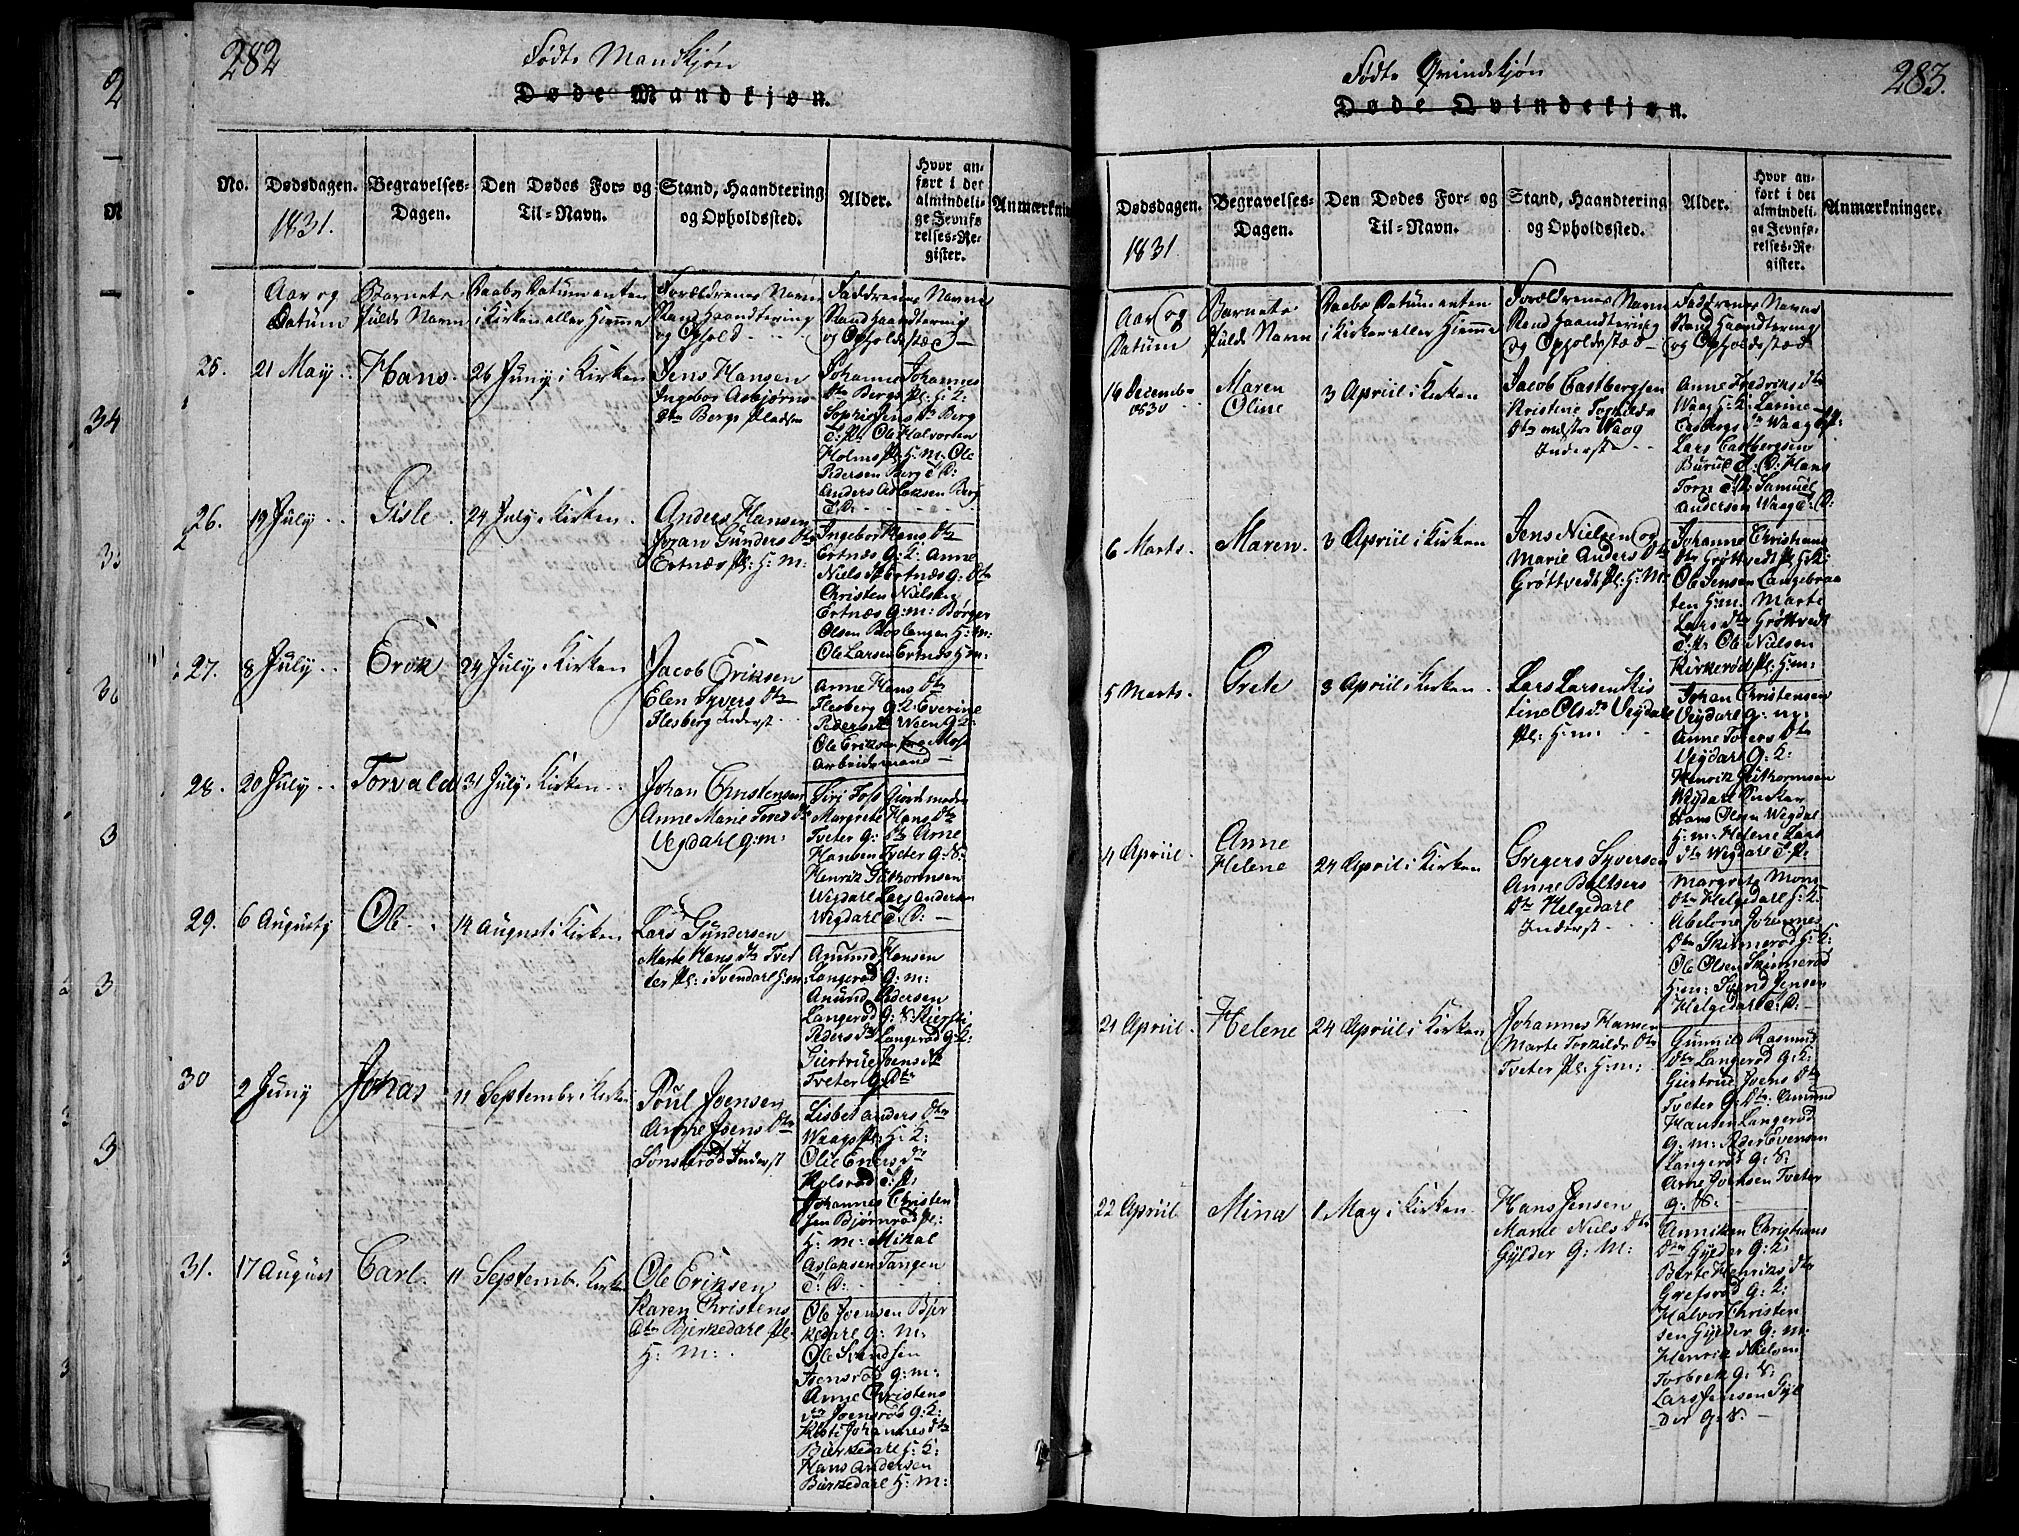 282
Fødte Mandkjøn
Døde Mandkjøn.
No.
Dødsdagen.
1831.
Begravelses-
Dagen.
Den Dødes For- og
Til-Navn.
Stand, Haandtering
og Opholdssted.
Alder.
Hvor an-
ført i det
almindeli-
ge Jevnfø-
relses-Re-
gister.
Anmærkning
Aar og
Datum
Barnets
fulde Navn
Daabs Datum enten
i Kirken eller Hiemme
Forældrenes Navn
Stand Haandtering
og Ophold
Faddrenes Navne
Stand Haandtering
og Opholdsstæd
25.
21 May
Hans
26 Juny i Kirken
Jens Hansen
Ingebor Asbjørns
Dtr Bergs Pladsen
Johannes Johannes
Dtr Bergs Pl: H: K:
Sophie Jens Dtr Berg
T: P: Ole Halvorsen
Holms Pl: H: M: Ole
Pedersen Berg T: D:
Anders Aslaksen Berg
T: D:
26.
19 July
Gisle
24 July i Kirken
Anders Hansen
Joran Gunders Dtr
Ertnæs Pl: H: M:
Ingebor Hans Dtr
Ertnæs G: K: Anne
Niels Dtr Ertnæs G: Dtr
Christen Nielsen
Ertnæs G: M: Børger
Olsen Boslangen H: M:
Ole Larsen Ertnæs H: M:
27.
8 July
Erik
24 July i Kirken
Jacob Eriksen
Elen Syvers Dtr
Flesberg Inderst
Anne Hans Dtr
Flesberg G: K: Everine
Peders Dtr Ween G: K:
Ole Eriksen fra Moss
Arbeidsmand
28.
20 July
Torvald
31 July i Kirken
Johan Christensen
Anne Marie Tores Dtr
Vegdarl G: M:
Siri Foss Giordmoder
Margrete Hans Dtr
Tveter G: Dtr Arne
Hansen Tveter G: S:
Henrik Guthormsen
Wegdarl Lars Andersen
Wegdarl T: D:
29.
6 Augustj
Ole
14 August i Kirken
Lars Gundersen
Marte Hans Dtr Tvet
ter Pl: i Svendarl H: M:
Amund Hansen
Langerød G: M:
Amund Pedersen
Langerød G: S: Kiersti
Peders Dtr Langerød G: K:
Giertrue Joens Dtr
Tveter G: Dtr
30
2 Juny
Johas
11 Septembr i Kirken
Poul Joensen
Anne Joens Dtr
Sonsterød Inderst
Lisbet Anders Dtr
Waags Pl: H: K:
Olie Eners Dtr
Holsrød T: P:
Johannes Christen
sen Bjørnrød Pl:
H: M: Mikal
Aslaksen Tangen
T: D:
31.
17 August
Carl
11 Septemb. i Kirke
Ole Eriksen
Karen Christens
Dtr Bjerkedarl Pl:
H: M:
Ole Joensen Bjer
kedarl G: M:
Ole Svendsen
Joensrød G: M:
Anne Christens
Dtr Joensrød G: K:
Kisti Johannes Dtr
Bierkedarl H: K:
Hans Andersen
Birkedarl H: M:
283.
Fødte Qvindekjøn
Døde Qvindekjøn.
Dødsdagen.
1831
Begravelses-
Dagen.
Den Dødes For- og
Til-Navn.
Stand, Haandtering
og Opholdssted.
Alder.
Hvor an-
ført i det
almindeli-
ge Jevnfø-
relses-Re-
gister.
Anmærkninger.
Aar og
Datum
Barnets
fulde Navn
Daabs Datum enten
i Kirken eller Hiemme
Forældrenes Navn
Stand Haandtering
og Opholdestæd
Faddrenes Navne
Stand Haandtering
og Opholdsstæd
16 Decembr
1830
Maren
Oline
3 Apriil i Kirken
Jacob Castbergsen
Kristine Torkilds
Dtr nedstre Waag
Inderste
Anne Fredriks Dtr
Waag H: K: Larine
Casbergs Dtr Waag T: P:
Lars Castbergsen
Burul T: D: Hans
Torn T: P: Samuel
Andersen Waag T: D:
6 Marts
Maren
3 Apriil i Kirken
Jens Nielsen og
Marie Anders Dtr
Grøttvedt Pl: H: M:
Johanne Christians
Dtr Grøttvedt Pl: H: K:
Ole Jensen Langebraa
ten H: M: Marte
Lars Dtr Grøttvedt
T: P: Ole Nielsen
Kirkerød Pl: H: M:
5 Marts
Grete
3 Apriil i Kirken
Lars Larsen Kis
tine Ols Dtr Vegdarl
Pl: H: M:
Johan Christensen
Vegdarl G: M:
Anne Tores Dtr
Vegdarl G: K:
Henrik Guthormsen
Wegdarl
Hans Olsen Wegdal
H: M: Helene Lars
Dtr Wegdarl T: P:
4 Apriil
Anne
Helene
24 Apriil i Kirken
Gregers Syversen
Anne Baltsers
Dtr Helgedarl
Inderst
Margrete Mons
Dtr Helgedarl H: K:
Abelone Johannes
Dtr Skinnerød H: K:
Ole Olsen Skinnerød
H: M: Svend Jensen
Helgedarl T: D:
21 Apriil
Helene
24 Apriil i Kirken
Johannes Hansen
Marte Torkilds Dtr
Tveter Pl: H: M:
Gunnild Rasmus
Dtr Langerød G: K:
Giertrue Joens Dtr
Tveter G: Dtr: Amund
Hansen Langerød
G: M: Peder Evensen
Langerød G: S:
Arne Joensen Tveter
G: S:
22 Apriil
Mina
1 May i Kirken
Hans Jensen
Marte Niels Dtr
Gylder G: M:
Anniken Christians
Dtr Gylder G: K:
Birte Henriks Dtr
Grefsrød G: K:
Halvor Christen
sen Gylder G: M:
Henrik Nielsen
Torbeck G: S:
Lars Jensen Gyl
der G: S: